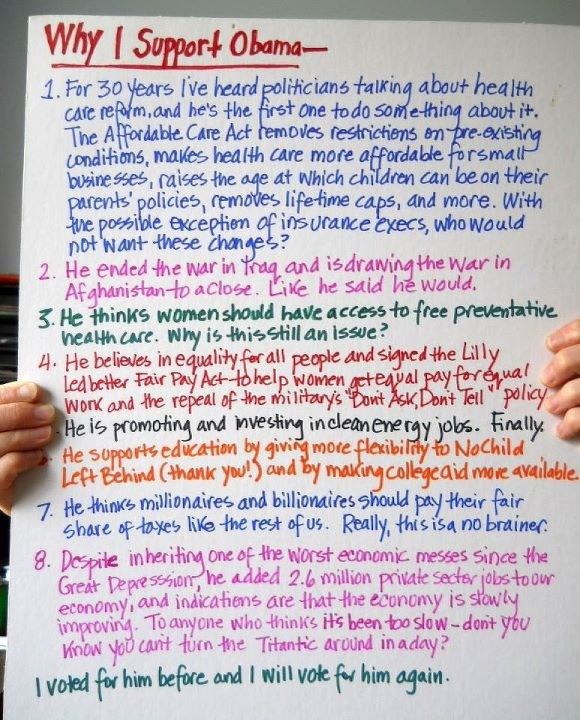 Why I Support Obama—
1. For 30 years I've heard politicians talking about health
care reform, and he's the first one to do something about it.
The Affordable Care Act removes restrictions on pre-existing
conditions, makes health care more affordable for small
businesses, raises the age at which children can be on their
parents' policies, removes lifetime caps, and more. With
the possible exception of insurance execs, who would
not want these changes?
2. He ended the war in Iraq and is drawing the war in
Afghanistan to a close. Like he said he would.
3. He thinks women should have access to free preventative
health care. Why is this still an issue?
4. He believes in equality for all people and signed the Lilly
Ledbetter Fair Pay Act to help women get equal pay for equal
work and the repeal of the military's "Don't Ask, Don't Tell" policy
. He is promoting and investing in clean energy jobs. Finally.
He supports education by giving more flexibility to No Child
Left Behind (thank you!) and by making college aid more available.
7. He thinks millionaires and billionaires should pay their fair
share of taxes like the rest of us. Really, this is a no brainer.
8. Despite inheriting one of the worst economic messes since the
Great Depresssion, he added 2.6 million private sector jobs to our
economy, and indications are that the economy is slowly
improving. To anyone who thinks it's been too slow - don't you
know you can't turn the Titantic around in a day?
I voted for him before and I will vote for him again.